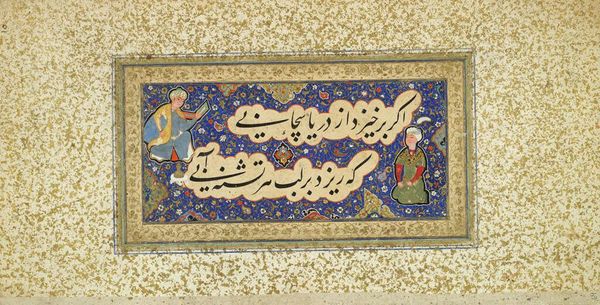 اگر برخیزد از دریا سحابی
که ریزد بر لب هر تشنه آبی